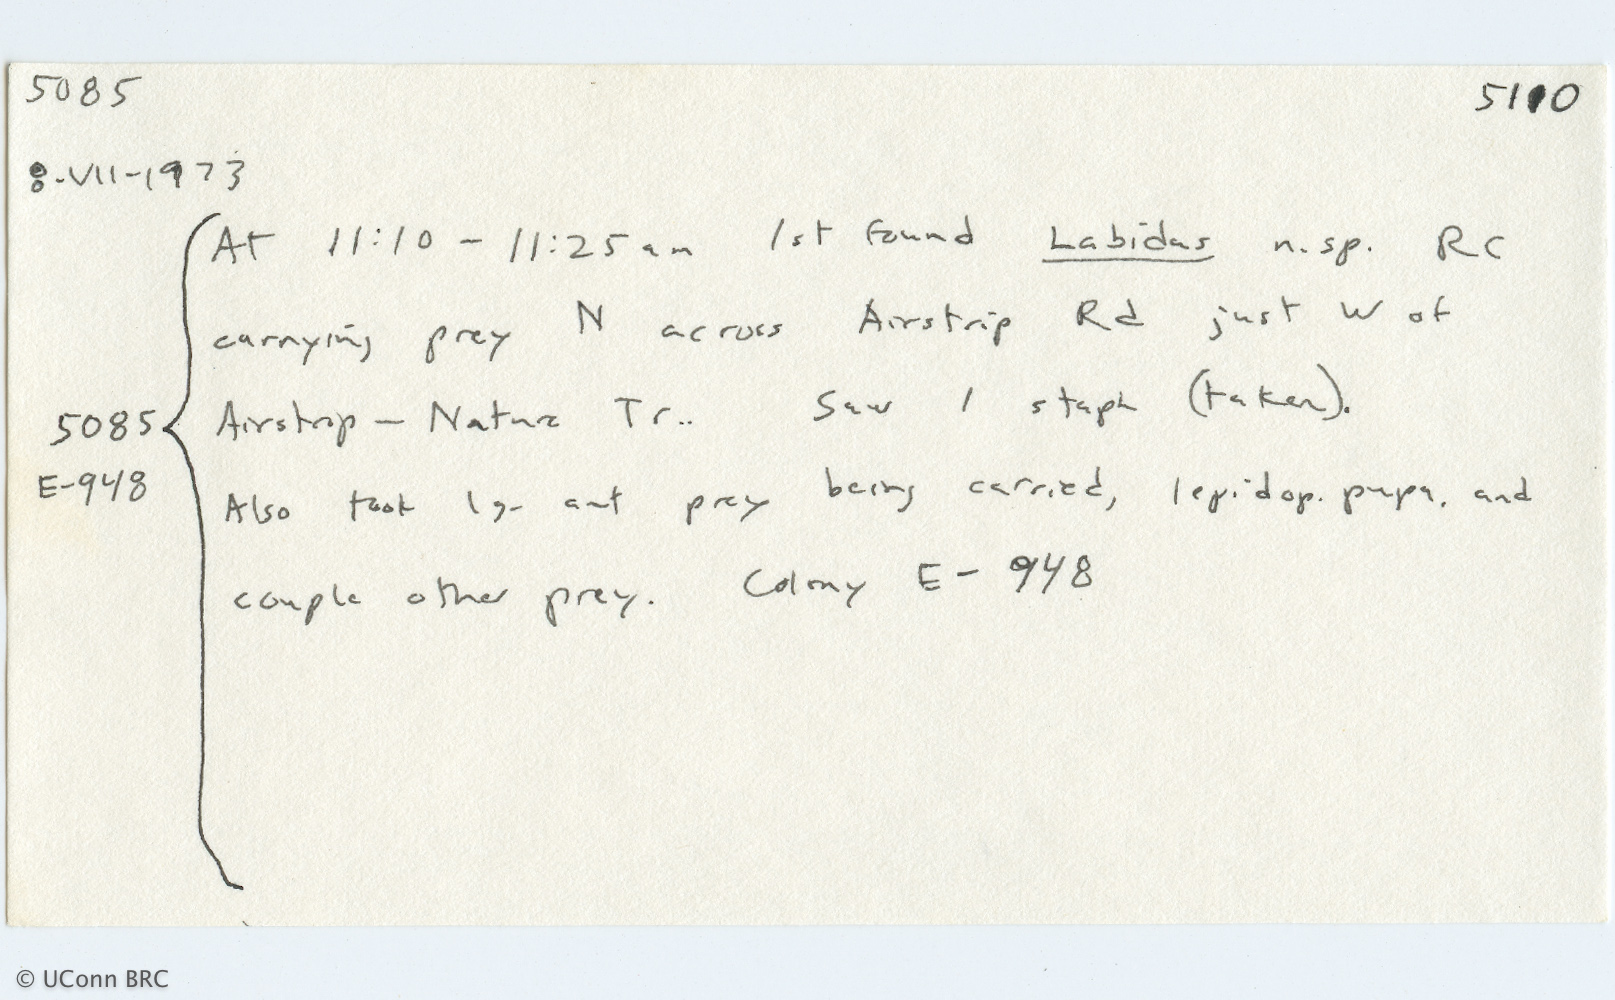 5085 5110
8-VII-1973
At 11:10 - 11:25am 1st found Labidus n.sp. RC
carrying prey N across Airstrip Rd just W of
5085 Airstrip - Nature Tr.. Saw 1 staph (taken).
E-948
Also took lg. ant prey being carried, lepidop. pupa, and
couple other prey. Colony E-948
© UConn BRC